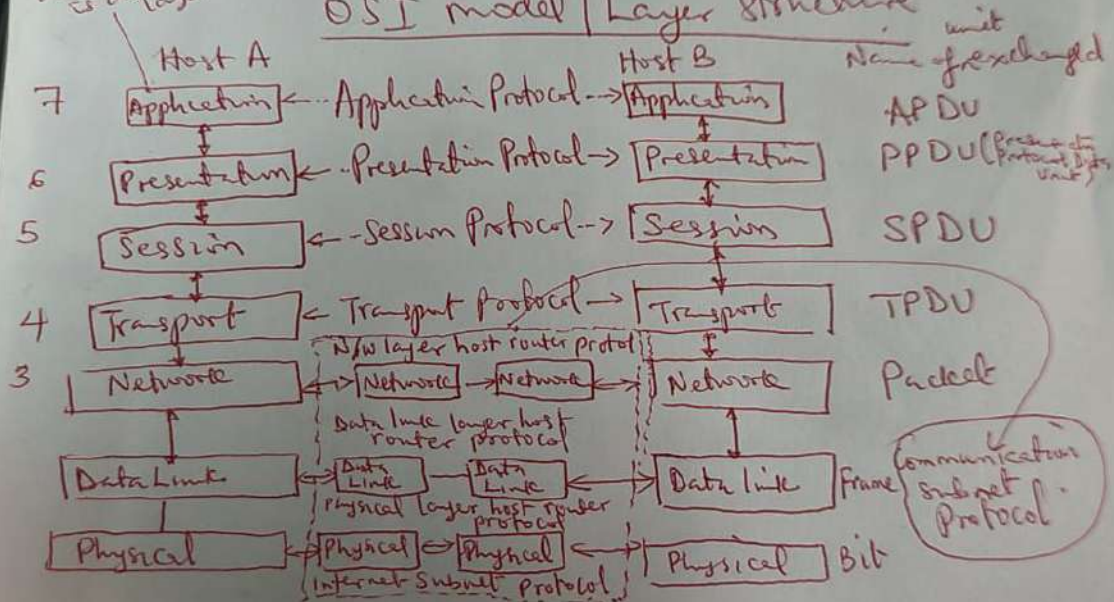 layer
OSI model / Layer structure
Host A Host B Name of unit exchanged
7 Application Application Protocol Application APDU
6 Presentation Presentation Protocol Presentation PPDU (Presentation Protocol Data Unit)
5 Session Session Protocol Session SPDU
4 Transport Transport Protocol Transport TPDU
N/w layer host router protol
3 Network Network Network Network Packet
Data link layer host
router protocol
Data Link Data Link Data Link Data link Frame
Communication
subnet
protocol
Physical layer host router
protocol
Physical Physical Physical Physical Bit
Internet Subnet Protocol